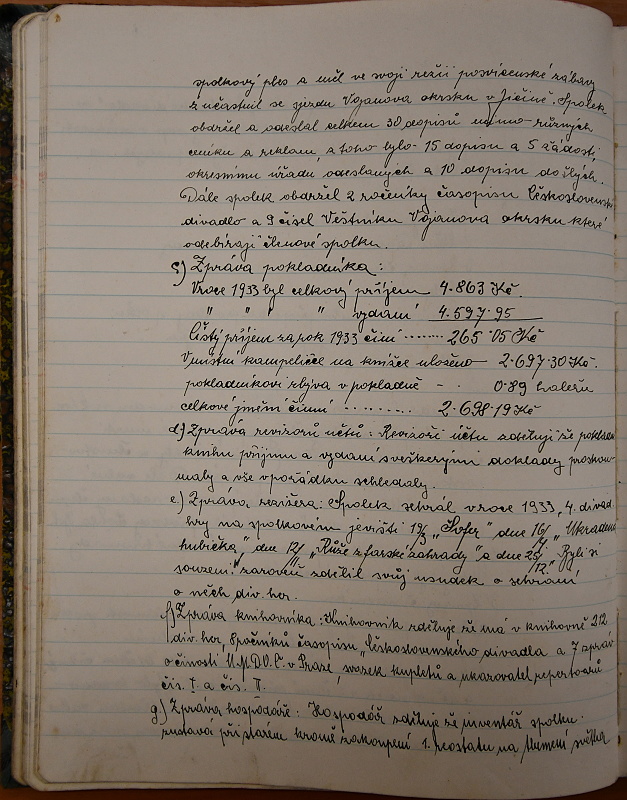 spolkový ples a měl ve svoji režii posvícenské zábavy
zúčastnil se sjezdu Vojanova okrsku v Jičíně. Spolek
obdržel a odeslal celkem 30 dopisů mimo různých
ceníku a reklam, a toho bylo 15 dopisu a 5 žádostí,
okresnímu úřadu odeslaných a 10 dopisu došlých.
Dále spolek obdržel 2 ročníky časopisu Československé
divadlo a 9 čísel Věstníku Vojanova okrsku které
odebírají členové spolku.
c) Zpráva pokladníka:
V roce 1933 byl celkový příjem 4.863 Kč.
" " " " vydání 4.597.95
Čistý příjem za rok 1933 činí ........ 265.05 Kč
V místní kampeličce na knížce uloženo 2.697.30 Kč.
pokladníkovi zbývá v pokladně - . 0.89 haleřu
celkové jmění činní .......... 2.698.19 Kč
d) Zpráva revizorů účtů: Revizoři účtu zdělují že pokladní
knihu příjmu a vydání s veškerými doklady prozkou-
maly a vše v pořádku schledaly.
e) Zpráva režiséra: Spolek sehrál v roce 1933, 4. divad.
hry na spolkovém jevišti 19/3 „Šofer" dne 16/7 „Ukradená
hubička", dne 12/11 „Růže z farské zahrady" a dne 25/12. „Byli si
souzeni". zároveň zdělil svůj úsudek o sehrání
o něch div. her.
f) Zpráva knihovníka: Knihovník zděluje že má v knihovně 212
div. her, 8 ročníků časopisu „Československého divadla a 7 zpráv
o činosti, Ú.M.D.O.Č. v Praze, svazek kupletů a ukazovatel repertoárů
čís. I. a čís. II.
g) Zpráva hospodáře: Hospodář zděluje že inventář spolku.
zustavá při starém kromě zakoupení 1. reostatu na tlumení světla